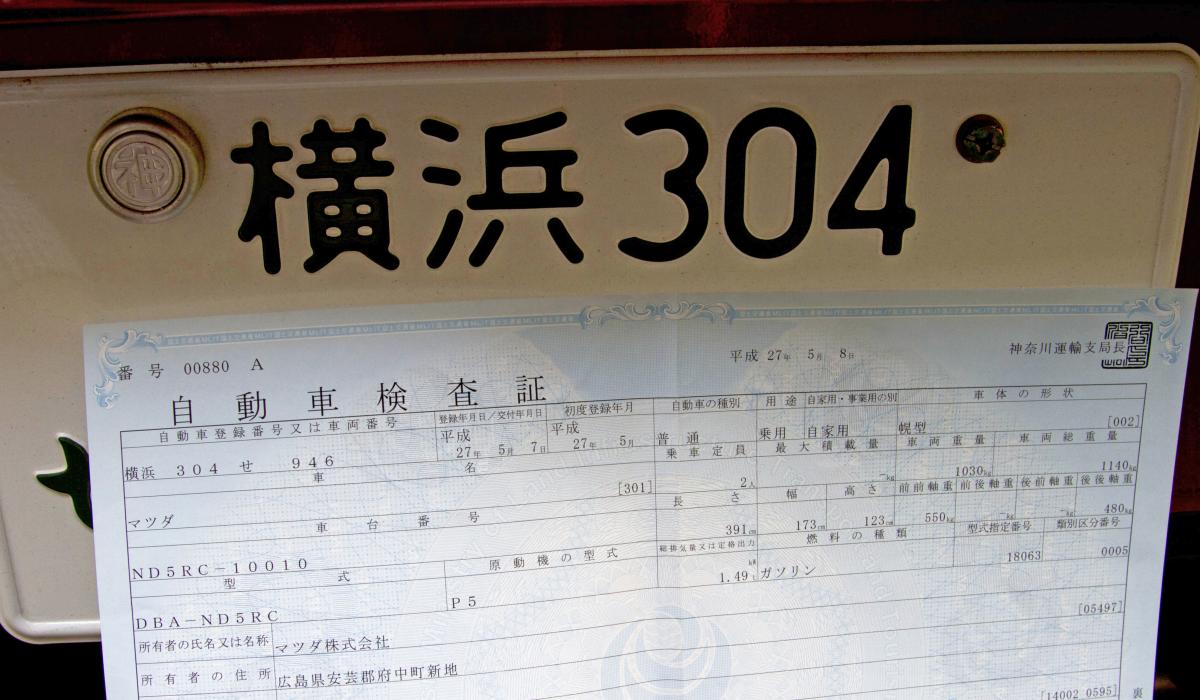 横浜 304
神
番号 00880 A
平成 27年 5月 8日
神奈川運輸支局長
自動車検査証
自動車登録番号又は車両番号 登録年月日/交付年月日 初度登録年月 自動車の種別 用途 自家用・事業用の別 車体の形状
横浜 304 せ 946 平成 27年 5月 7日 平成 27年 5月 普通 乗用 自家用 幌型 [002]
車名 乗車定員 最大積載量 車両重量 車両総重量
マツダ [301] 2人 -kg 1030kg 1140kg
車台番号 長さ 幅 高さ 前前軸重 前後軸重 後前軸重 後後軸重
ND5RC-10010 391cm 173cm 123cm 550kg -kg -kg 480kg
型式 原動機の型式 総排気量又は定格出力 燃料の種類 型式指定番号 類別区分番号
DBA-ND5RC P5 1.49 kW L ガソリン 18063 0005
所有者の氏名又は名称 マツダ株式会社 [05497]
所有者の住所 広島県安芸郡府中町新地 [14002 0595]
裏
せ